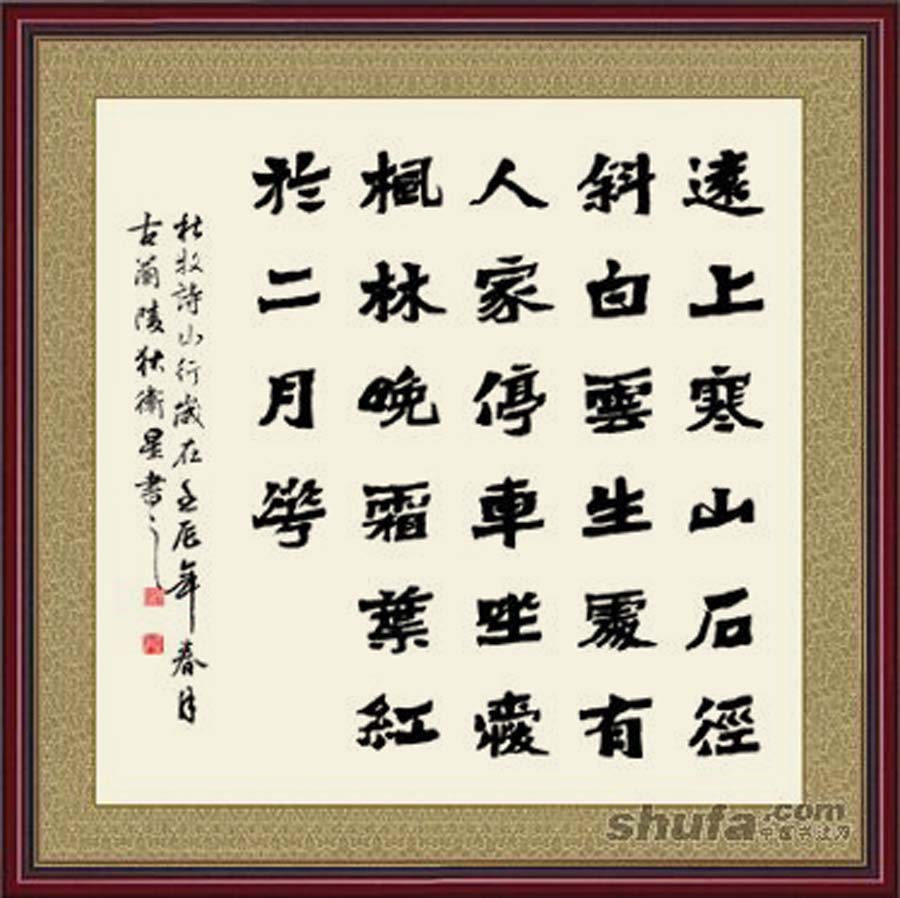 遠上寒山石徑
斜白雲生處有
人家停車坐愛
楓林晚霜葉紅
於二月花
杜牧詩山行歲在壬辰年春月
古蘭陵狄衛星書
shufa.com
中国书法网